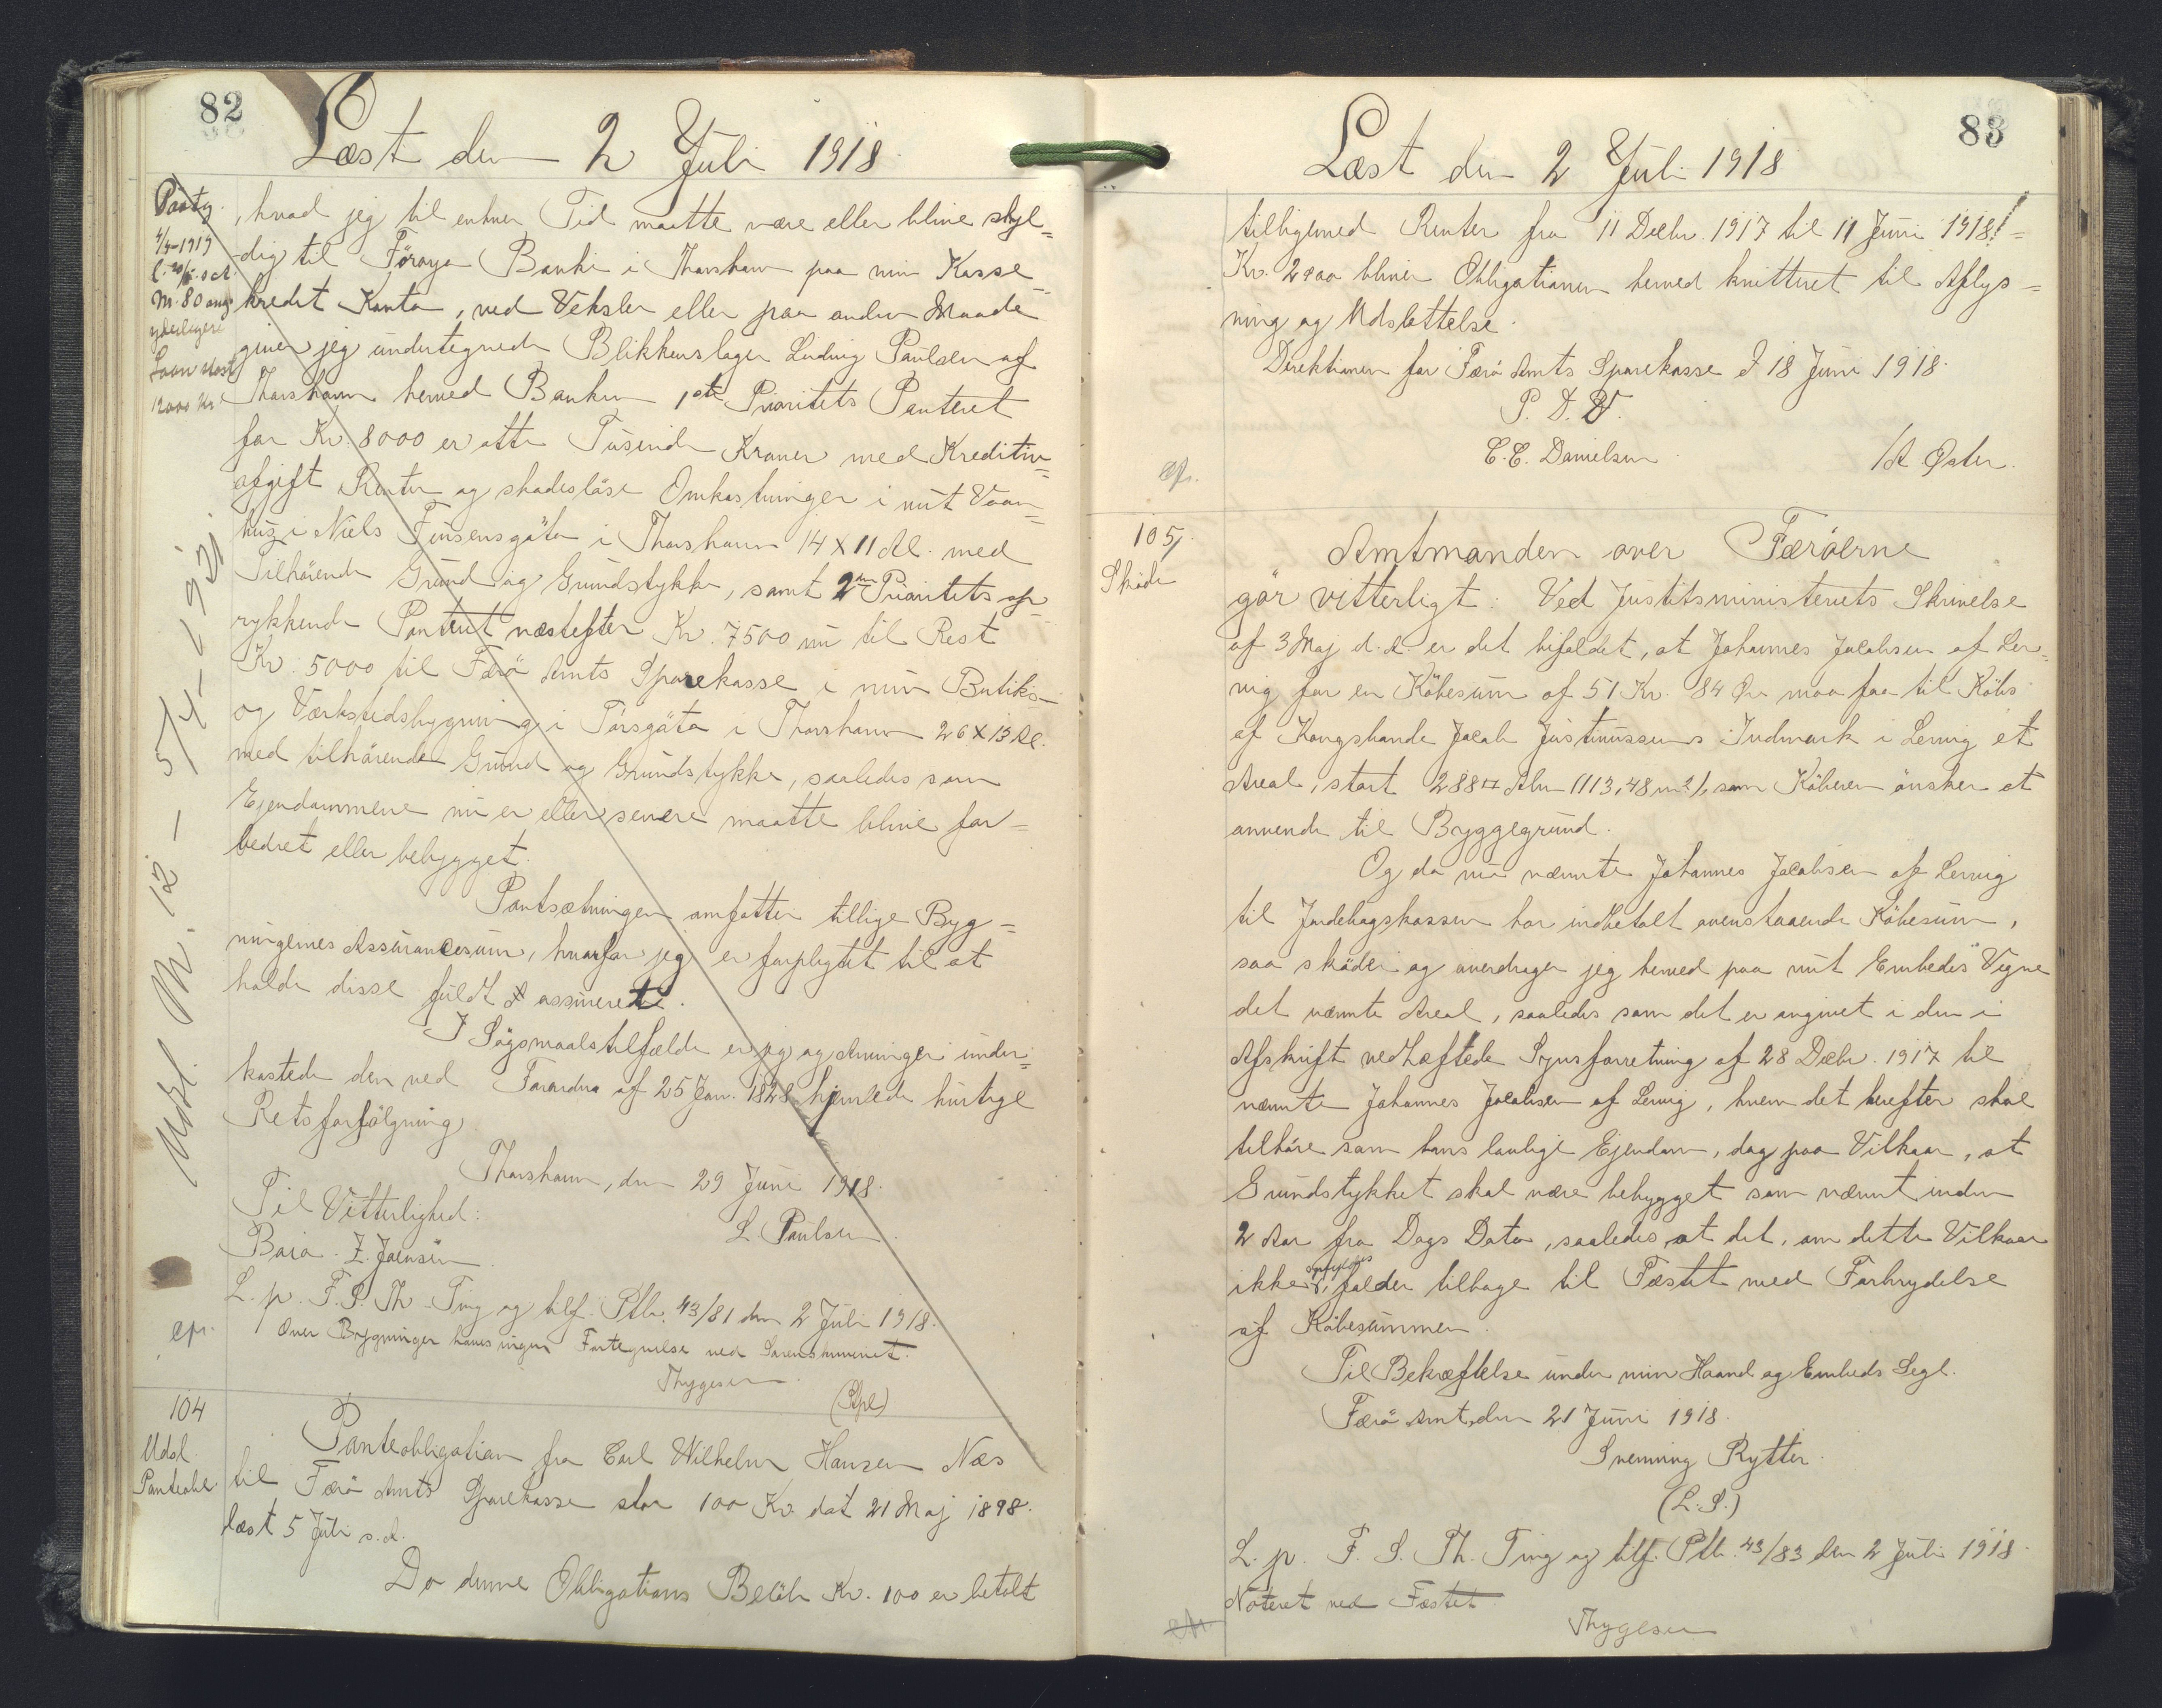 82
Læst den 2 Juli 1918
Paateg.
4/4-1919
M. 80 ang.
yderligere
Laan stort
12000 Kr
, hvad jeg til enhver Tid maatte være eller blive skyl=
dig til Föroya Banki i Thorshavn paa min Kasse=
kredit Konto, ved Veksler eller paa anden Maade
giver jeg undertegnede Blikkenslager Ludvig Paulsen af
Thorshavn herved Banken 1ste Prioritets Panteret
for Kr. 8000 er otte Tusinde Kroner med Kreditiv=
afgift Renter og skadesløse Omkostninger i mit Vaan=
hus i Niels Finsensgöta i Thorshavn 14 x 11 Al. med
Tilhörende Grund og Grundstykke, samt 2den Prioritets op=
rykkende Panteret næstefter Kr. 7500 nu til Rest
Kr. 5000 til Færö Amts Sparekasse i min Butiks-
og Værkstedsbygning i Törsgöta i Thorshavn 26 x 13 Al.
med tilhörende Grund og Grundstykke, saaledes som
Ejendommene nu er eller senere maatte blive for=
bedret eller bebygget.
Pantsætningen omfatter tillige Byg=
ningernes Assurancesum, hvorfor jeg er forpligtet til at
holde disse fuldt assurerede.
I Sögsmaalstilfælde er jeg og Arvinger under=
kastede den ved Forordn. af 25 Jan. 1828 hjemlede hurtige
Retsforfölgning
Thorshavn, den 29 Juni 1918.
Til Vitterlighed:
L. Paulsen.
J. Joensen
L. p. F. S. Th. Ting og tilf. Ptb. 43/81 den 2 Juli 1918.
Over Bygninger haves ingen Fortegnelse ved Sorenskriveriet.
Thygesen
Udsl. M. 12 – 5/4-1921
104
Udsl.
Panteobl.
Panteobligation fra Carl Wilhelm Hansen Næs
til Færö Amts Sparekasse stor 100 Kr. dat 21 Maj 1898.
læst 5 Juli s.d.
Da denne Obligations Belöb Kr. 100 er betalt
83
Læst den 2 Juli 1918
tilligemed Renter fra 11 Decbr. 1917 til 11 Juni 1918 =
Kr. 2,00 bliver Obligationen herved kvitteret til Aflys=
ning og Udslettelse.
Direktionen for Færö Amts Sparekasse d 18 Juni 1918.
P. D. V.
C. C. Danielsen
/A Öster.
105.
Sköde
Amtmanden over Færöerne
gör vitterligt: Ved Justitsministeriets Skrivelse
af 3 Maj d.A. er det bifaldet, at Johannes Jacobsen af Ler=
vig for en Köbesum af 51 Kr. 84 Öre maa faa til Köbs
af Kongsbonde Jacob Justinussens Indmark i Lervig et
Areal, stort 288 □ Alen (113,48 m2), som Köberen önsker at
anvende til Byggegrund.
Og da nu nævnte Johannes Jacobsen af Lervig
til Jordebogskassen har indbetalt ovenstaaende Köbesum,
saa sköder og overdrager jeg herved paa mit Embedes Vegne
det nævnte Areal, saaledes som det er angivet i den i
Afskrift vedhæftede Synsforretning af 28 Decbr. 1917 til
nævnte Johannes Jacobsen af Lervig, hvem det herefter skal
tilhöre som hans lovlige Ejendom, dog paa Vilkaar, at
Grundstykket skal være bebygget som nævnt inden
2 Aar fra Dags Dato, saaledes at det, om dette Vilkaar
ikke opfyldes, falder tilbage til Fæstet med Fortrydelse
af Köbesummen.
Til Bekræftelse under min Haand og Embeds Segl.
Færö Amt, den 21 Juni 1918.
Svenning Rytter.
(L.S.)
L. p. F. S. Th. Ting og tilf. Ptb. 43/83 den 2 Juli 1918.
Noteret ved Fæstet
Thygesen